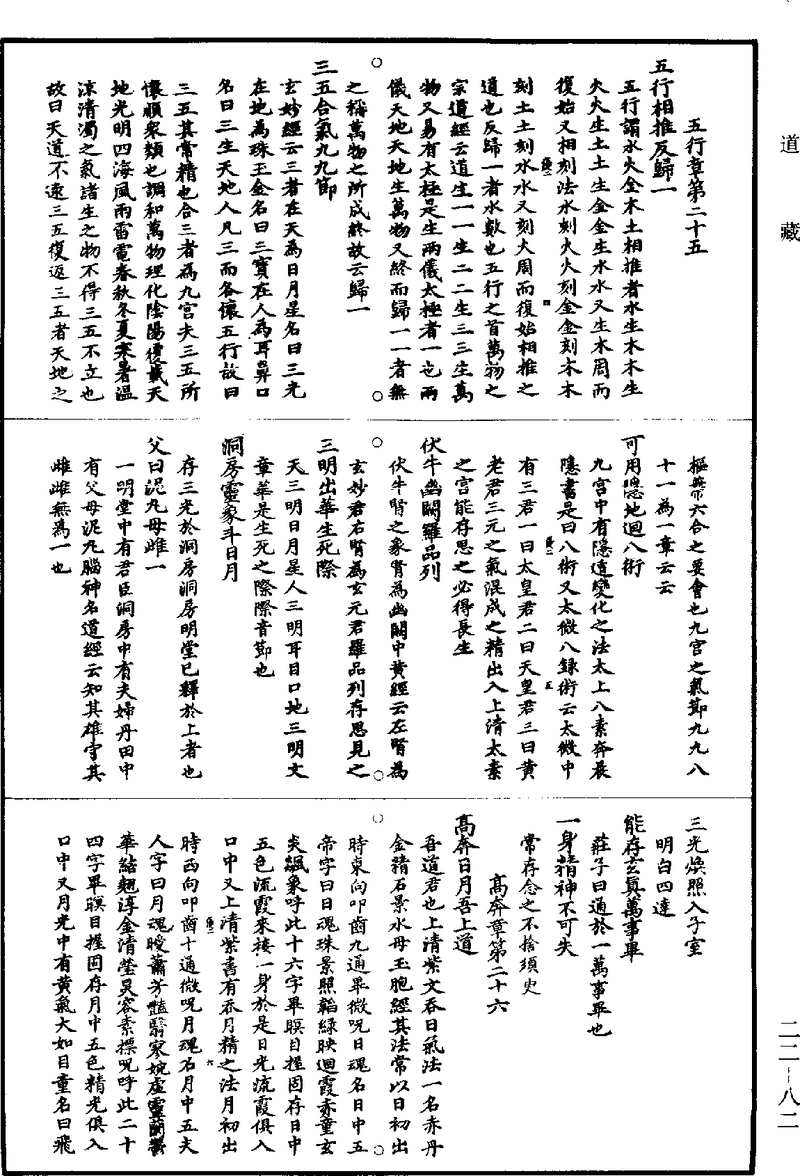 道藏
五行章第二十五
五行相推反歸一
五行謂水火金木土相推者水生木木生
火火生土土生金金生水水又生木周而
復始又相刻法水刻火火刻金金刻木木
刻土土刻水水又刻火周而復始相推之
道也反歸一者水數也五行之首萬物之
宗道經云道生一一生二二生三三生萬
物又易有太極是生兩儀太極者一也兩
儀天地天地生萬物又終而歸一一者無
之稱萬物之所成終故云歸一
三五合氣九九節
玄妙經云三者在天為日月星名曰三光
在地為珠玉金名曰三寶在人為耳鼻口
名曰三生天地人凡三而各懷五行故曰
三五其常精也合三者為九宫夫三五所
懷順衆類也調和萬物理化陰陽覆載天
地光明四海風雨雷電春秋冬夏寒暑溫
涼清濁之氣諸生之物不得三五不立也
故曰天道不遠三五復返三五者天地之
樞帶六合之要會也九宫之氣節九九八
十一為一章云云
可用隱地迴八術
九宫中有隱遁變化之法太上八素奔晨
隱書是曰八術又太微八錄術云太微中
有三君一曰太皇君二曰天皇君三曰黄
老君三元之氣混成之精出入上清太素
之宫能存思之必得長生
伏牛幽闕羅品列
伏牛腎之象腎為幽闕中黄經云左腎為
玄妙君右腎為玄元君羅品列存思見之
三明出華生死際
天三明日月星人三明耳目口地三明文
章華是生死之際際音節也
洞房靈象斗日月
存三光於洞房洞房明堂已釋於上者也
父曰泥丸母雌一
一明堂中有君臣洞房中有夫婦丹田中
有父母泥丸腦神名道經云知其雄守其
雌雌無為一也
三光煥照入子室
明白四達
能存玄真萬事畢
莊子曰通於一萬事畢也
一身精神不可失
常存念之不捨須臾
高奔章第二十六
高奔日月吾上道
吾道君也上清紫文吞日氣法一名赤丹
金精石景水母玉胞經其法常以日初出
時東向叩齒九通畢微呪日魂名日中五
帝字曰日魂珠景照韜綠映迴霞赤童玄
炎飈象呼此十六字畢瞑目握固存日中
五色流霞來接一身於是日光流霞俱入
口中又上清紫書有吞月精之法月初出
時西向叩齒十通微呪月魂名月中五夫
人字曰月魂曖蕭芳豔翳寥婉虛靈蘭鬱
華結翹淳金清瑩炅容素標呪呼此二十
四字畢瞑目握固存月中五色精光俱入
口中又月光中有黄氣大如目童名曰飛
二二—八二